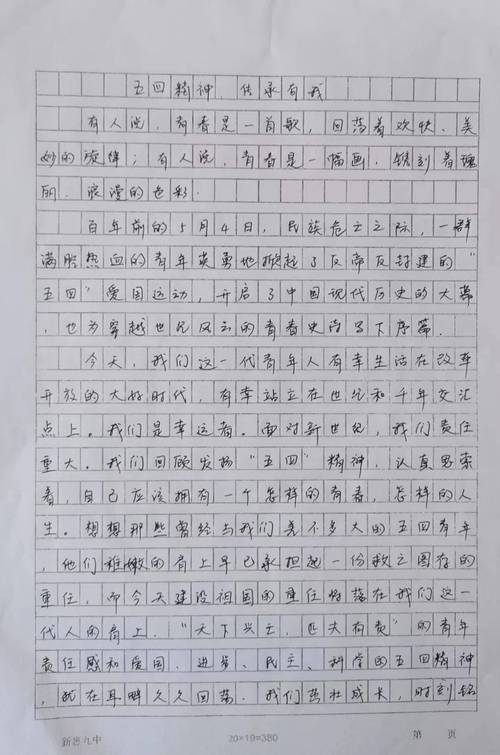 五四精神、传承有我
有人说，青春是一首歌，回荡着欢快、美
妙的旋律；有人说，青春是一幅画，镌刻着瑰
丽、浪漫的色彩.
百年前的5月4日，民族危亡之际，一群
满腔热血的青年英勇地掀起了反帝反封建的“
五四”爱国运动，开启了中国现代历史的大幕
，也为穿越世纪风云的青春史诗写下序篇.
今天，我们这一代青年人有幸生活在改革
开放的大好时代，有幸站立在世纪和千年交汇
点上。我们是幸运者。面对新世纪，我们责任
重大。我们回顾发扬“五四”精神，认真思索
着，自己应该拥有一个怎样的青春，怎样的人
生。想想那些曾经与我们差不多大的五四青年
，他们稚嫩的肩上早已承担起一份救亡图存的
重任，而今天建设祖国的重任将落在我们这一
代人的肩上.“天下兴亡，匹夫有责”的青年
责任感和爱国、进步、民主、科学的五四精神
，就在耳畔久久回荡.我们茁壮成长，时刻铭
新思九中
20×19=380
第 页